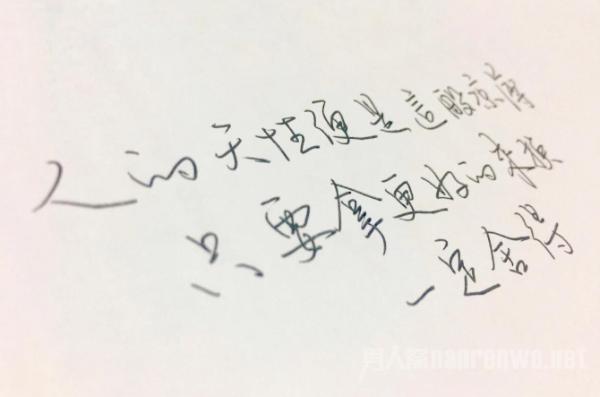 人的天性便是這般涼薄
只要拿更好的来换
一定舍得
男人窝nanrenwo.net